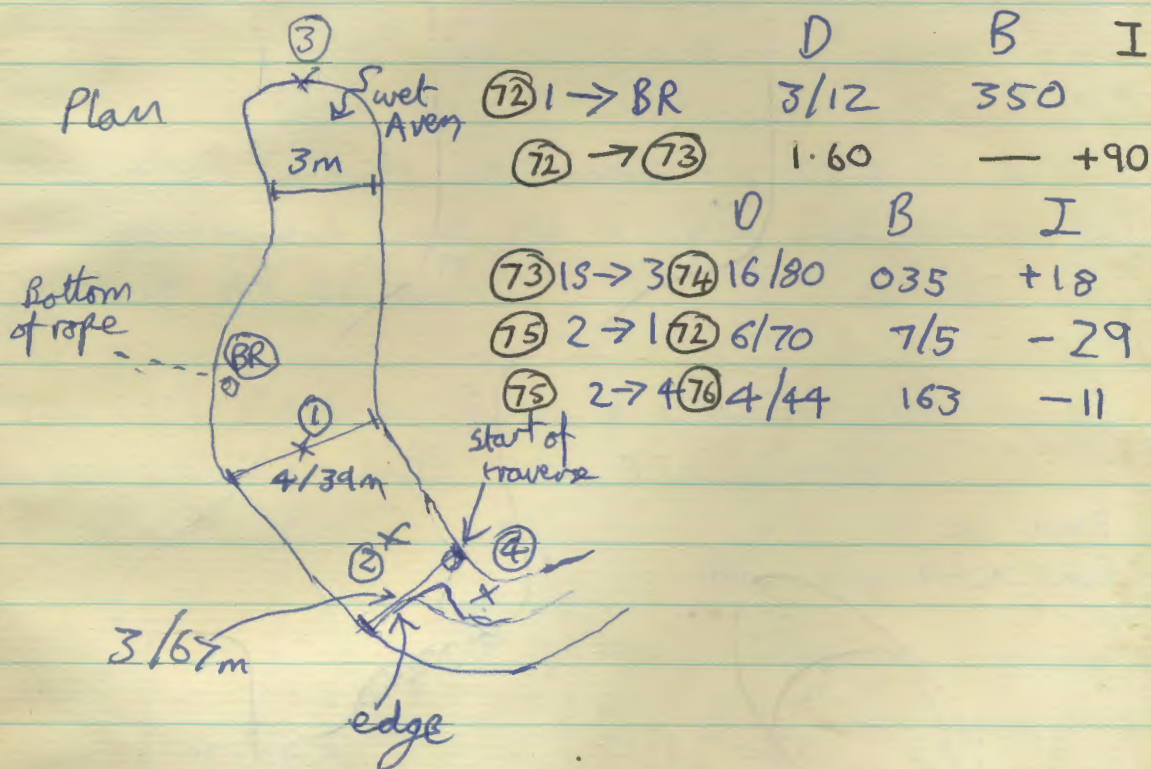 Plan
③
Swet
Aven
3m
Bottom
of rope
BR
①
4/39m
start of
traverse
②
④
3/67m
edge
D B I
⑦② 1 → BR 3/12 350
⑦② → ⑦③ 1.60 — +90
D B I
⑦③ 1S → 3 ⑦④ 16/80 035 +18
⑦⑤ 2 → 1 ⑦② 6/70 7/5 -29
⑦⑤ 2 → 4 ⑦⑥ 4/44 163 -11